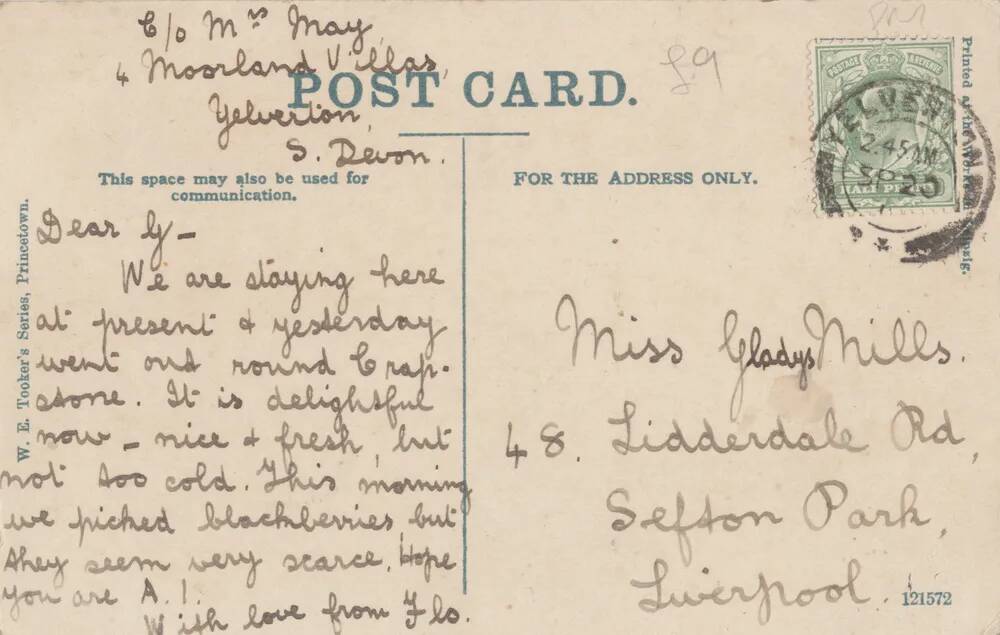 C/o Mrs May,
4 Moorland Villas,
Yelverton,
S. Devon.
POST CARD.
This space may also be used for
communication.
FOR THE ADDRESS ONLY.
Dear G—
We are staying here
at present & yesterday
went out round Crap-
stone. It is delightful
now — nice & fresh, but
not too cold. This morning
we picked blackberries, but
they seem very scarce. Hope
you are A.1.
With love from Flo.
Miss Gladys Mills.
48. Lidderdale Rd,
Sefton Park,
Liverpool.
121572
W. E. Tooker's Series, Princetown.
Printed at the
POSTAGE & REVENUE
HALF PENNY
YELVERTON
2.45 PM
SP 20
£9